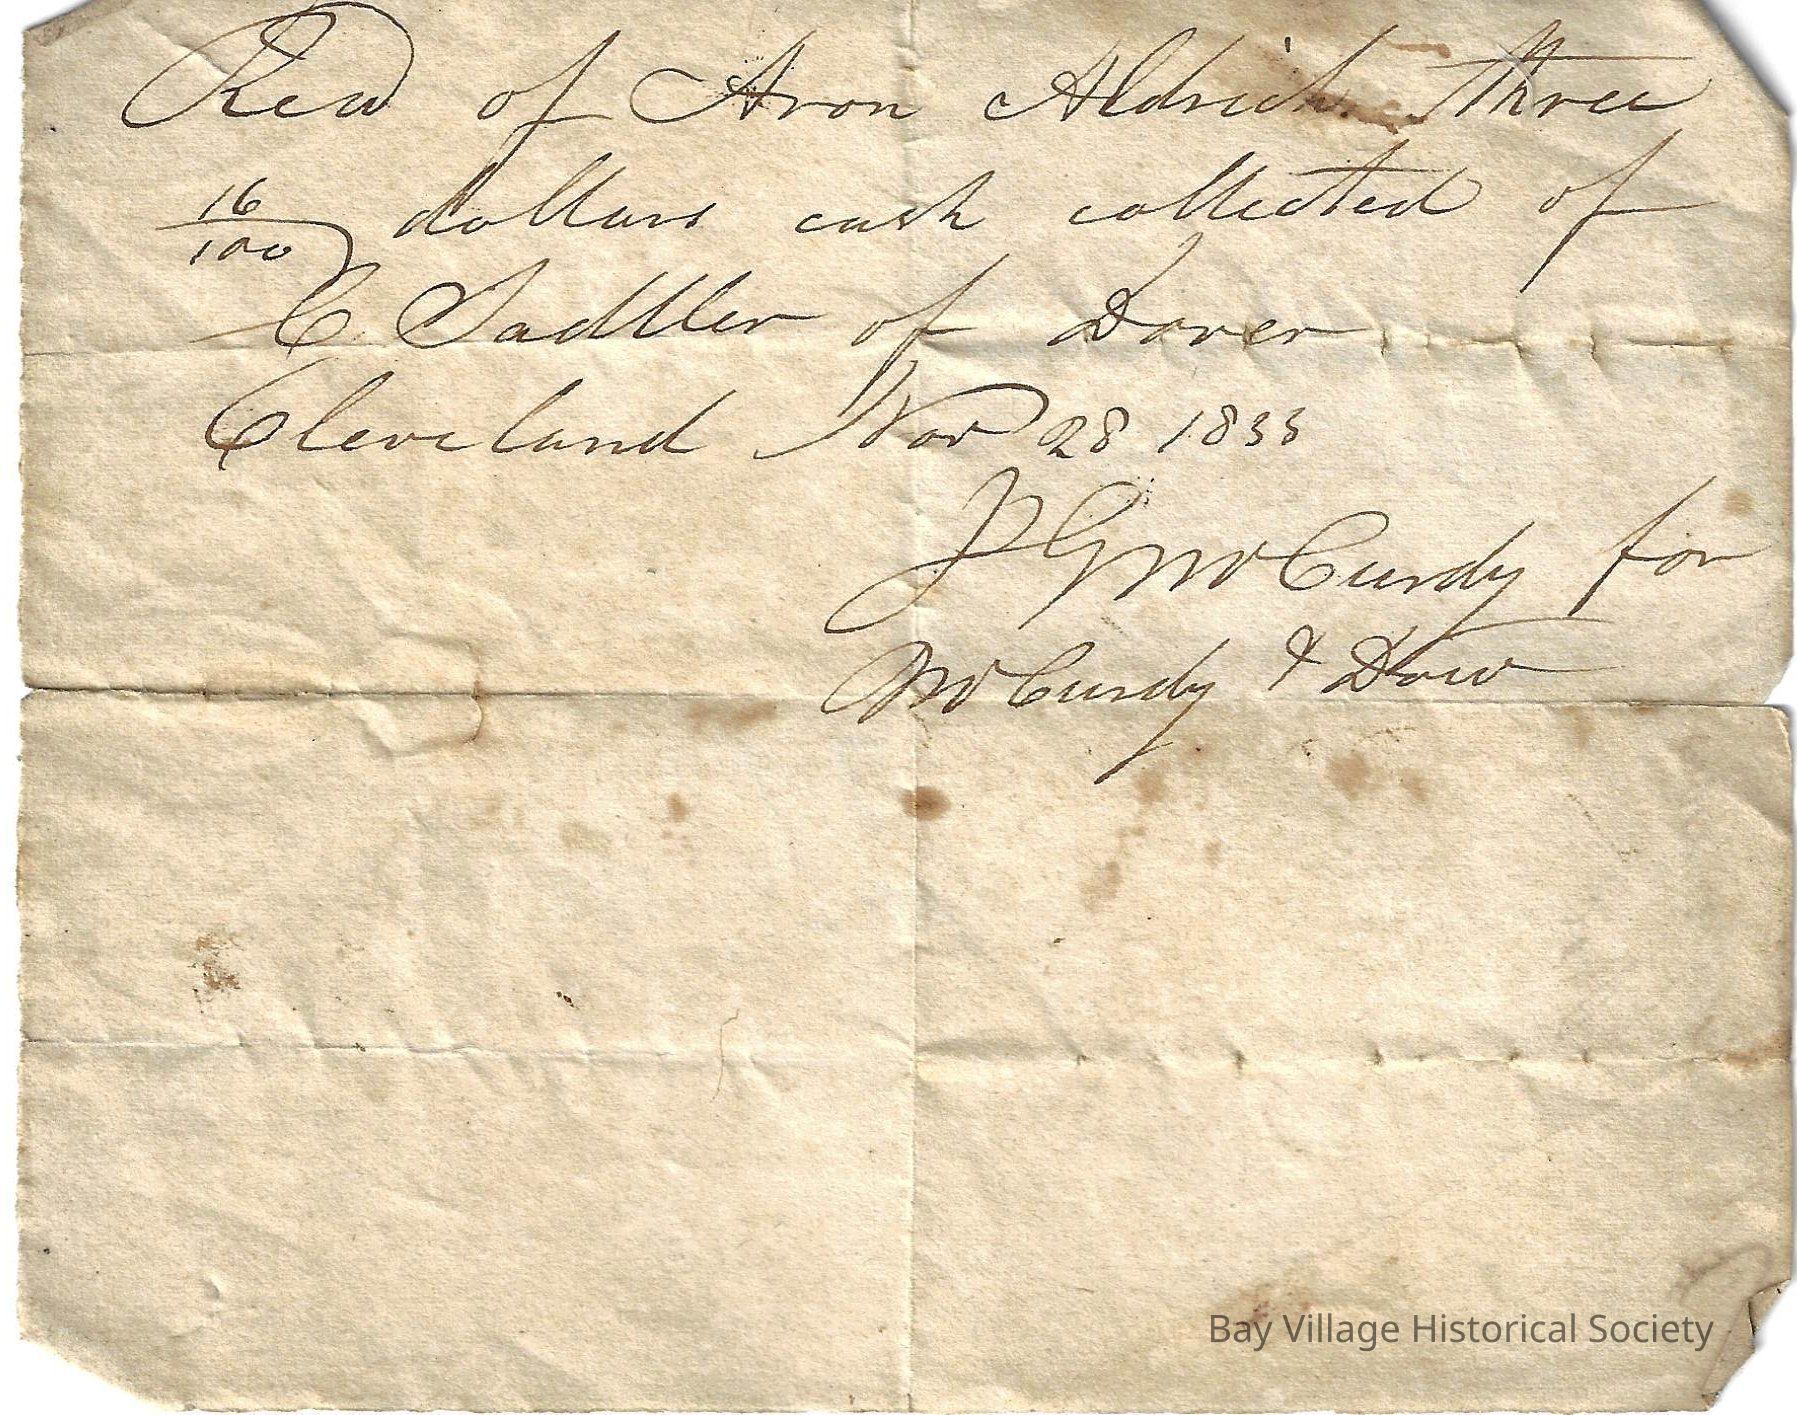 Recd of Aron Aldrich three
16/100 dollars cash collected of
C Sadtler of Dover
Cleveland Nov 28 1833
J G McCurdy for
McCurdy & Dow
Bay Village Historical Society